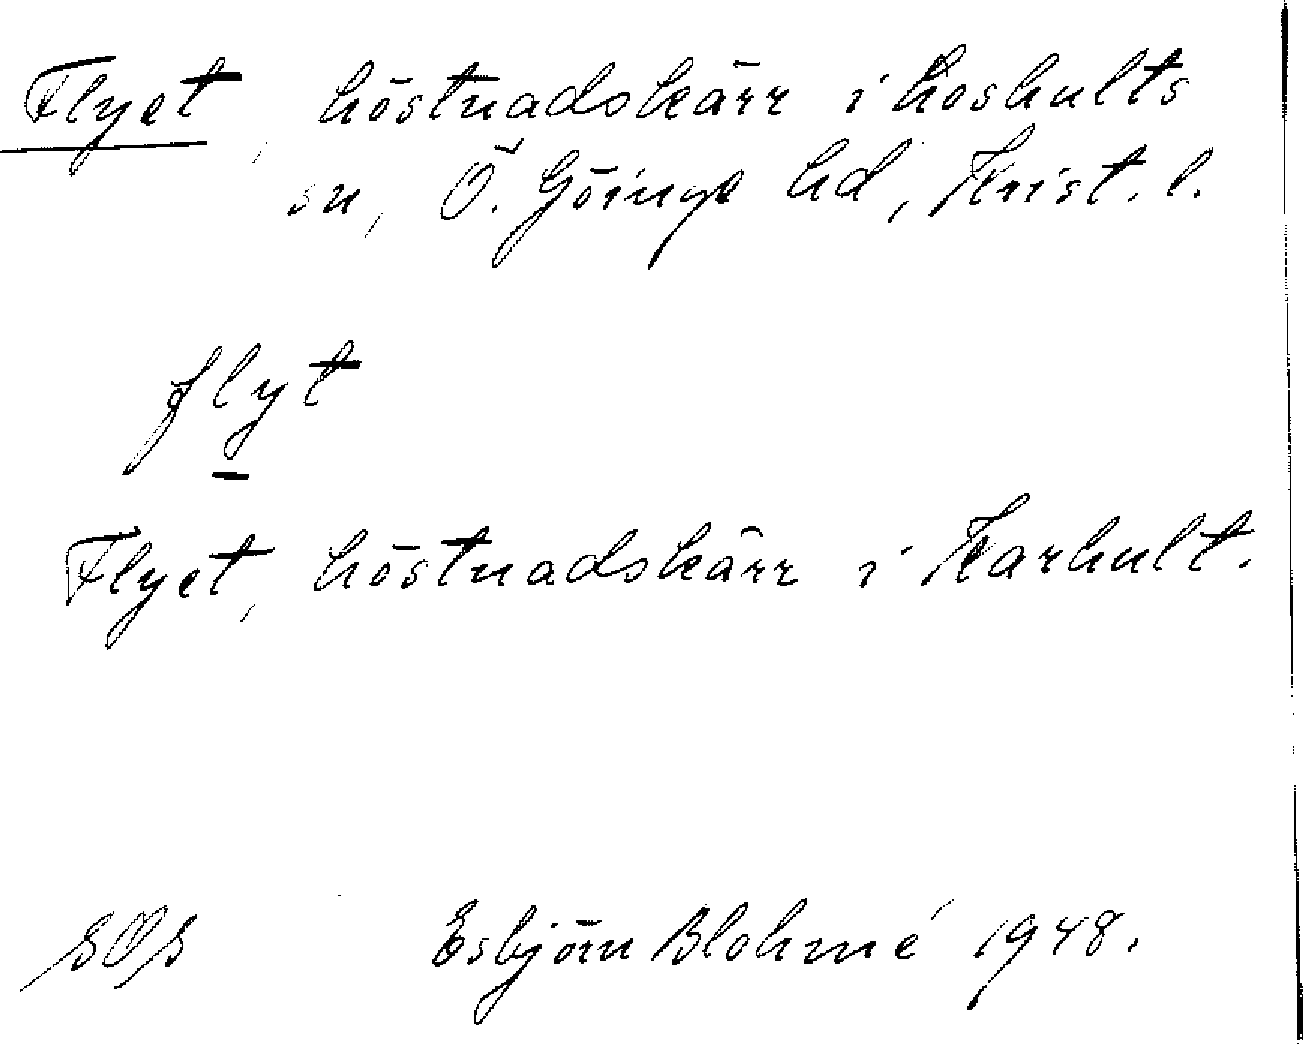 Flyet, höstnadskärr i Loshults
sn, Ö. Göinge hd, Krist. l.
flyt
Flyet, höstnadskärr i Karhult.
SOS Esbjörn Blohmé 1948.